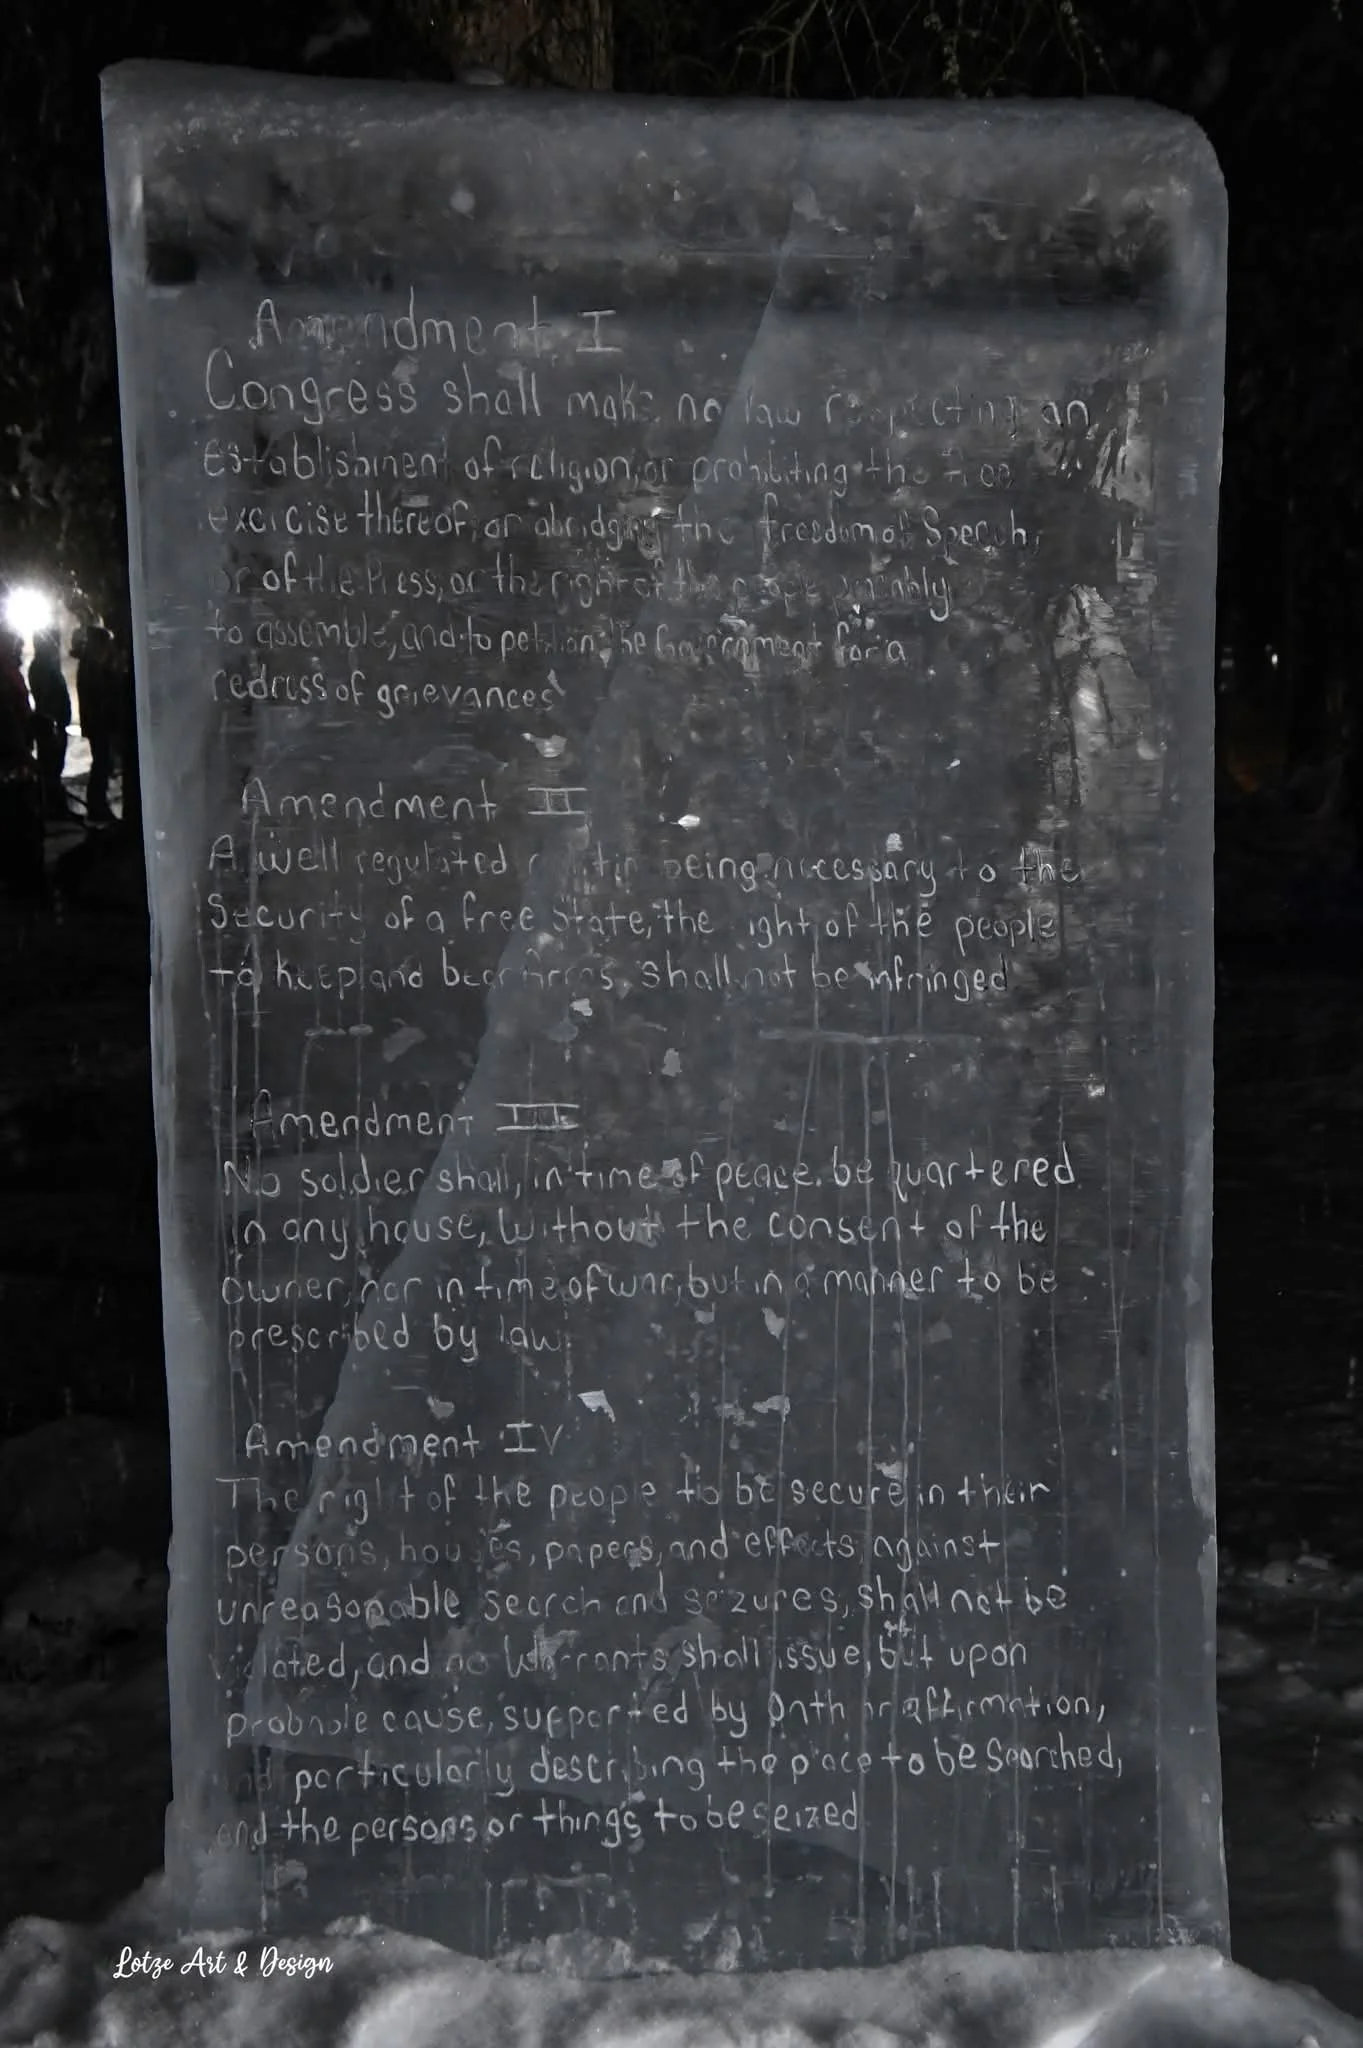 Amendment I
Congress shall make no law respecting an
establishment of religion, or prohibiting the free
excicise thereof, or abridging the freedom of Speech,
or of the Press, or the right of the people
to assemble, and to petition the Government for a
redress of grievances
Amendment II
A well regulated being necessary to the
Security of a free State, the right of the people
to keep and bear Arms, shall not be infringed
Amendment III
No soldier shall, in time of peace. be quartered
in any house, without the consent of the
owner, nor in time of war, but in a manner to be
prescribed by law.
Amendment IV
The right of the people to be secure in their
persons, houses, papers, and effects, against
unreasonable search and seizures, shall not be
violated, and no Warrants shall issue, but upon
probable cause, supported by Oath or affirmation,
and particularly describing the place to be Searched,
and the persons or things to be seized
Lotze Art & Design